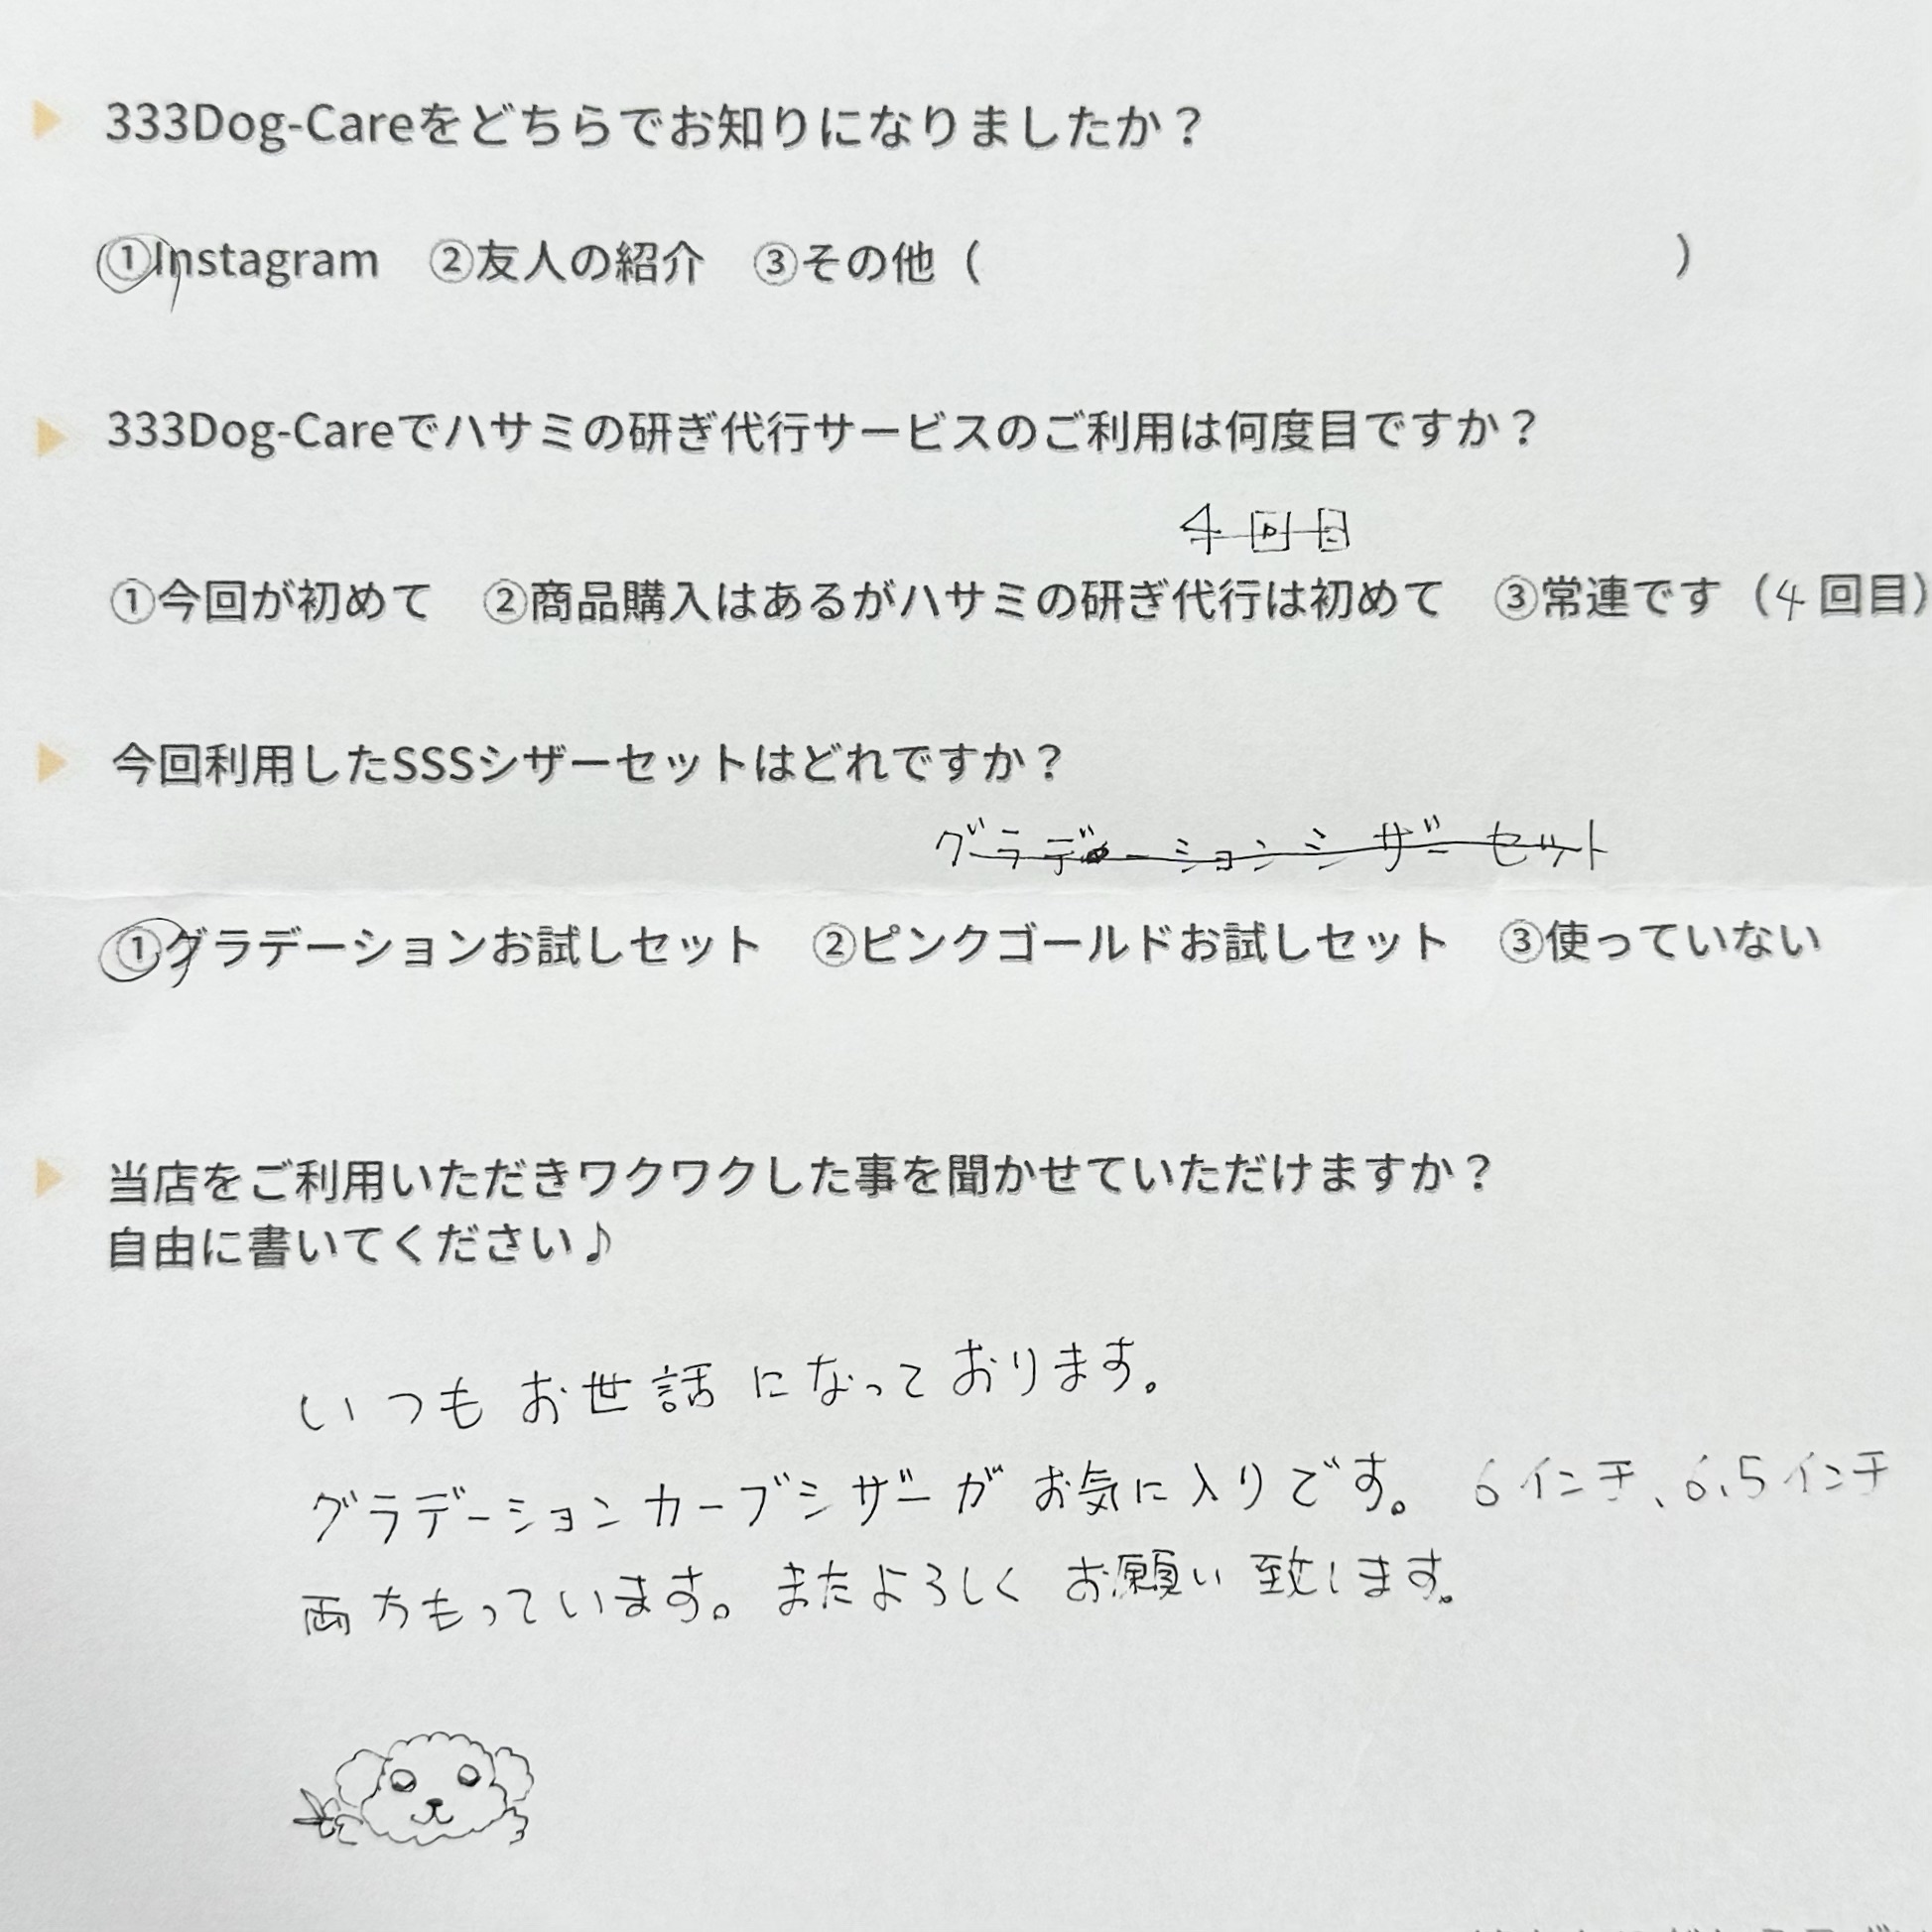 333Dog-Careをどちらでお知りになりましたか？
①Instagram ②友人の紹介 ③その他（ ）
333Dog-Careでハサミの研ぎ代行サービスのご利用は何度目ですか？
4回目
①今回が初めて ②商品購入はあるがハサミの研ぎ代行は初めて ③常連です（4回目）
今回利用したSSSシザーセットはどれですか？
グラデーションシザーセット
①グラデーションお試しセット ②ピンクゴールドお試しセット ③使っていない
当店をご利用いただきワクワクした事を聞かせていただけますか？
自由に書いてください♪
いつもお世話になっております。
グラデーションカーブシザーがお気に入りです。6インチ、6.5インチ
両方もっています。またよろしくお願い致します。